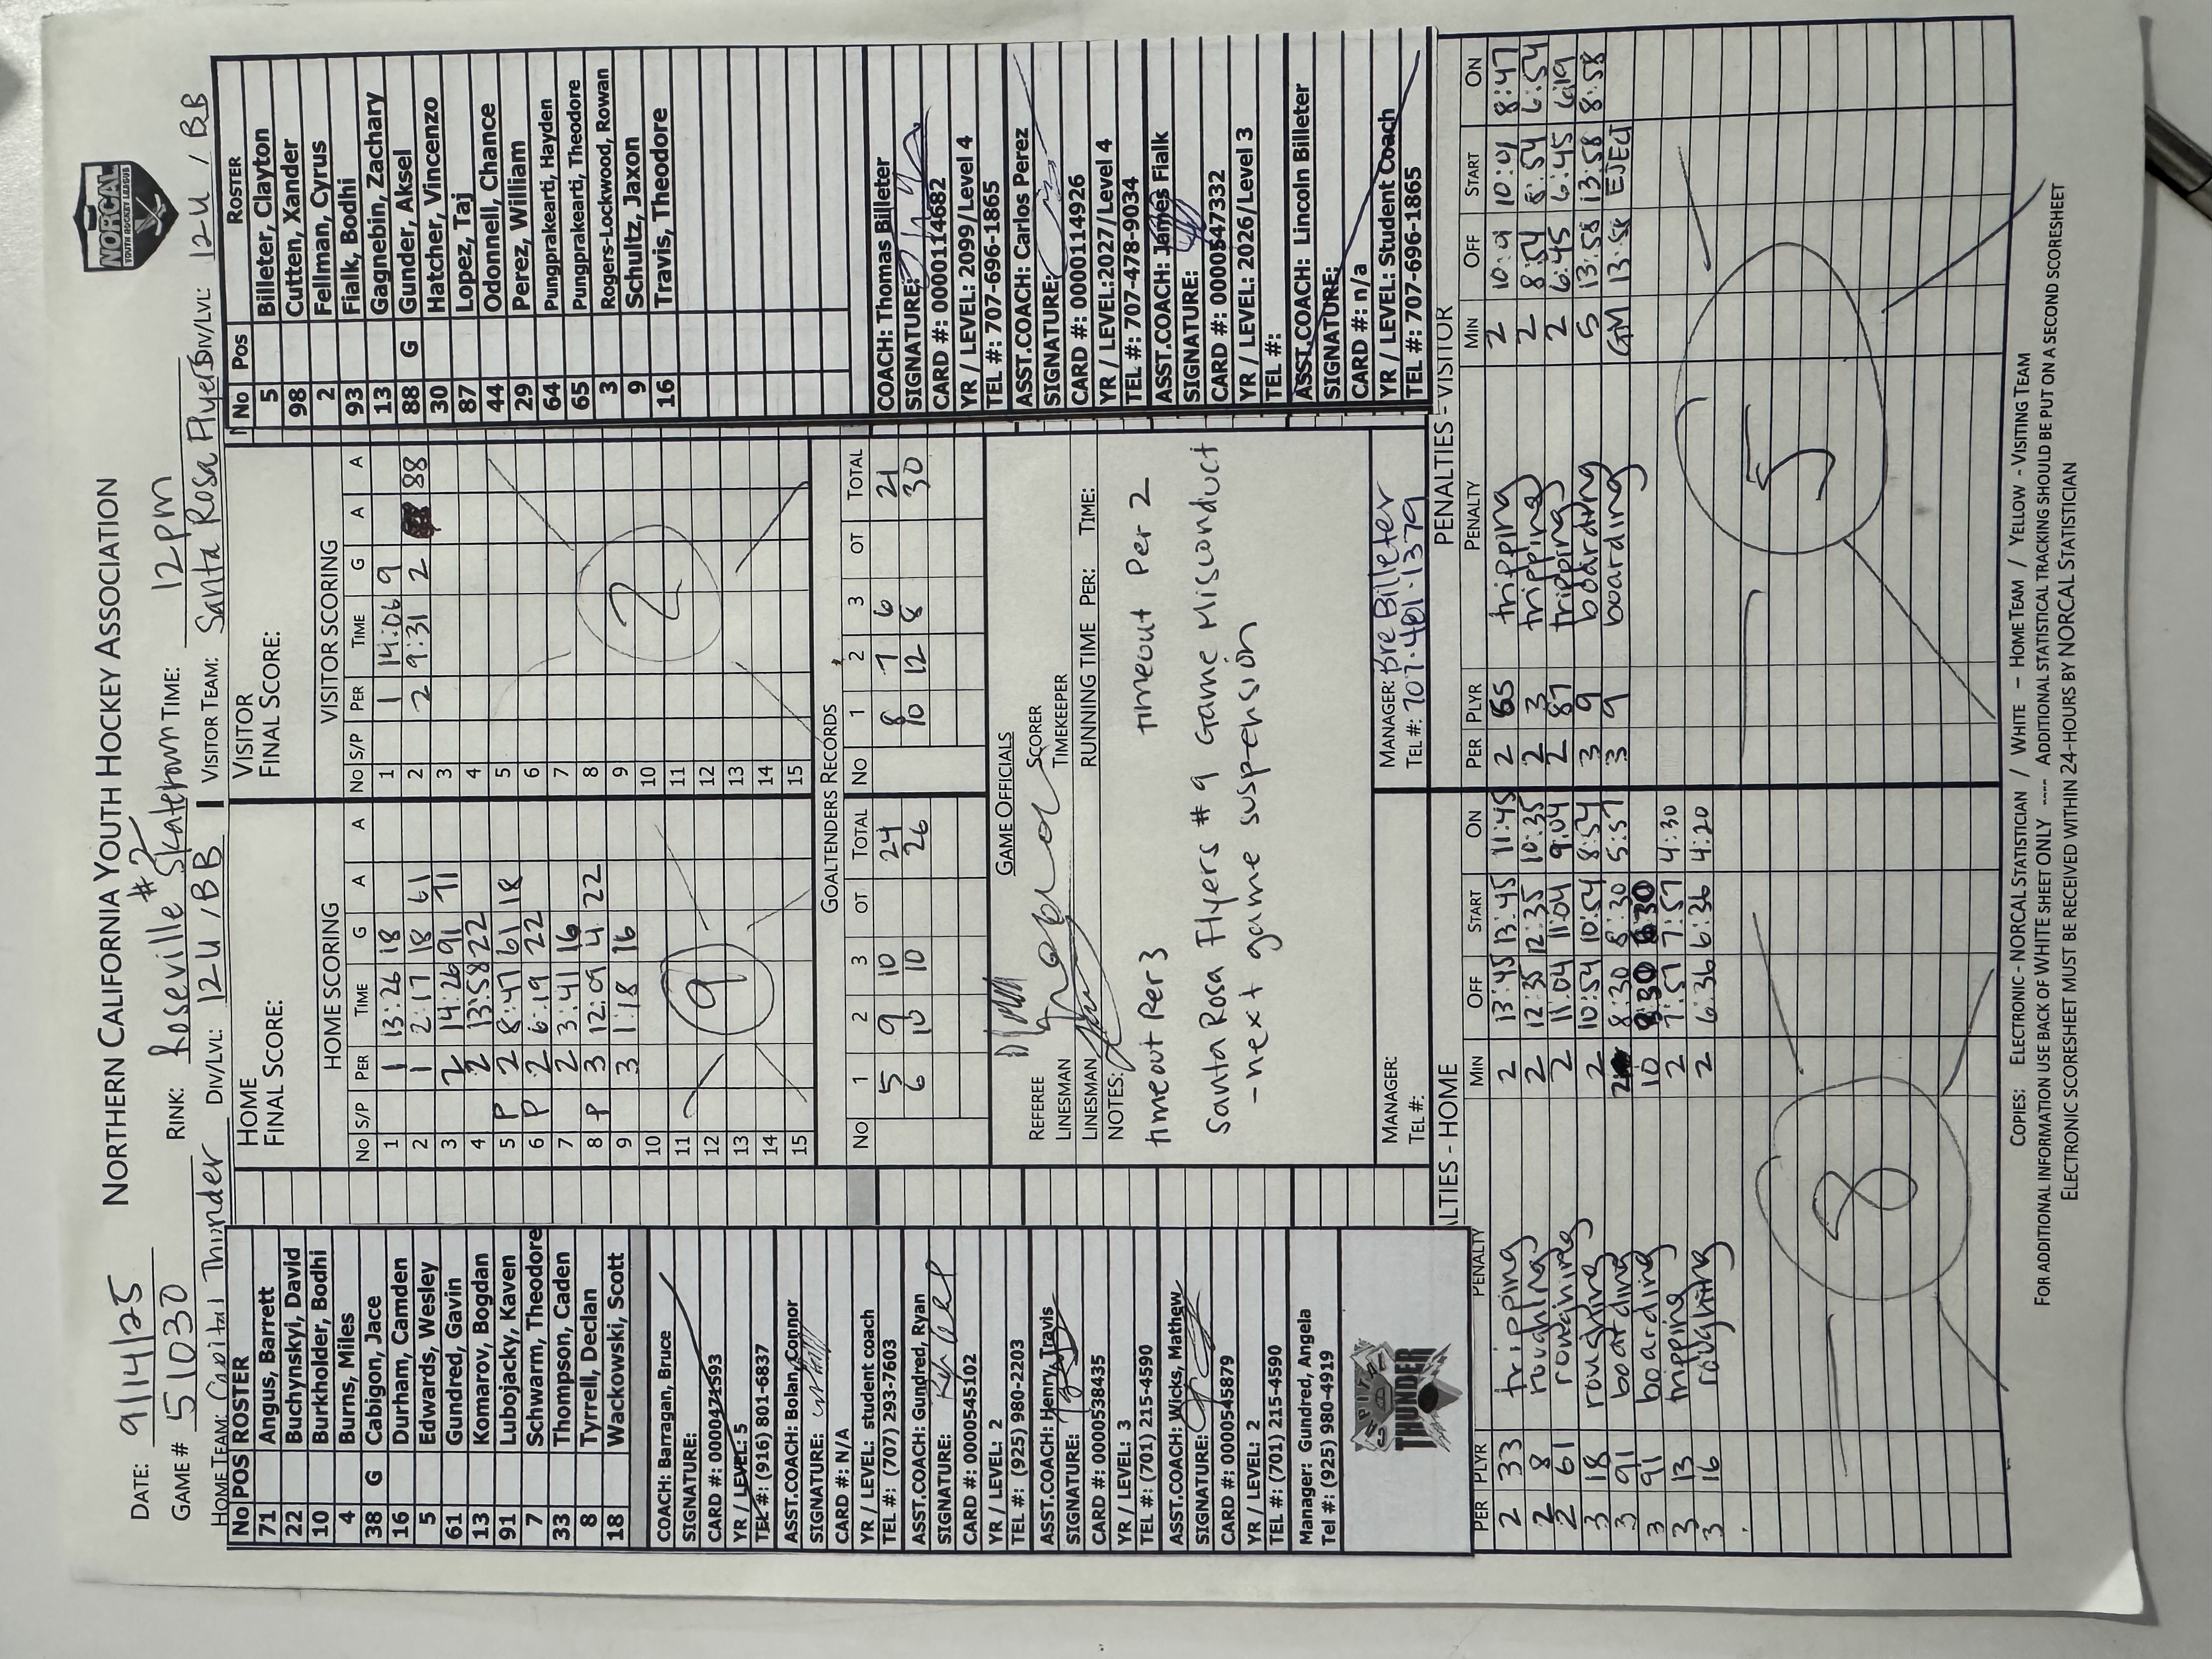 NORTHERN CALIFORNIA YOUTH HOCKEY ASSOCIATION
NORCAL
YOUTH HOCKEY LEAGUE
DATE: 9/14/25
GAME # 51030 RINK: Roseville Skatetown #2 TIME: 12pm
HOME TEAM: Capital Thunder DIV/LVL: 12U / BB VISITOR TEAM: Santa Rosa Flyers DIV/LVL: 12U / BB
No POS ROSTER
71 Angus, Barrett
22 Buchynskyi, David
10 Burkholder, Bodhi
4 Burns, Miles
38 G Cabigon, Jace
16 Durham, Camden
5 Edwards, Wesley
61 Gundred, Gavin
13 Komarov, Bogdan
91 Lubojacky, Kaven
7 Schwarm, Theodore
33 Thompson, Caden
8 Tyrrell, Declan
18 Wackowski, Scott
COACH: Barragan, Bruce
SIGNATURE:
CARD #: 0000471593
YR / LEVEL: 5
TEL #: (916) 801-6837
ASST.COACH: Bolan, Connor
SIGNATURE:
CARD #: N/A
YR / LEVEL: student coach
TEL #: (707) 293-7603
ASST.COACH: Gundred, Ryan
SIGNATURE:
CARD #: 0000545102
YR / LEVEL: 2
TEL #: (925) 980-2203
ASST.COACH: Henry, Travis
SIGNATURE:
CARD #: 0000538435
YR / LEVEL: 3
TEL #: (701) 215-4590
ASST.COACH: Wicks, Mathew
SIGNATURE:
CARD #: 0000545879
YR / LEVEL: 2
TEL #: (701) 215-4590
Manager: Gundred, Angela
Tel #: (925) 980-4919
CAPITAL
THUNDER
HOME
FINAL SCORE:
HOME SCORING
No S/P PER TIME G A A
1 1 13:26 18
2 1 2:17 18 61
3 2 14:26 91 71
4 2 13:58 22
5 P 2 8:47 61 18
6 P 2 6:19 22
7 2 3:41 16
8 P 3 12:09 4 22
9 3 1:18 16
10
11
12
13
14
15
9
VISITOR
FINAL SCORE:
VISITOR SCORING
No S/P PER TIME G A A
1 1 14:06 9
2 2 9:31 2 88
3
4
5
6
7
8
9
10
11
12
13
14
15
2
No Pos ROSTER
5 Billeter, Clayton
98 Cutten, Xander
2 Fellman, Cyrus
93 Fialk, Bodhi
13 Gagnebin, Zachary
88 G Gunder, Aksel
30 Hatcher, Vincenzo
87 Lopez, Taj
44 Odonnell, Chance
29 Perez, William
64 Pungprakearti, Hayden
65 Pungprakearti, Theodore
3 Rogers-Lockwood, Rowan
9 Schultz, Jaxon
16 Travis, Theodore
GOALTENDERS RECORDS
No 1 2 3 OT TOTAL No 1 2 3 OT TOTAL
5 9 10 24 8 7 6 21
6 10 10 26 10 12 8 30
GAME OFFICIALS
REFEREE SCORER
LINESMAN TIMEKEEPER
LINESMAN RUNNING TIME PER: TIME:
NOTES:
timeout Per 3 timeout Per 2
Santa Rosa Flyers #9 Game Misconduct
- next game suspension
MANAGER:
TEL #:
MANAGER: Bre Billeter
TEL #: 707.461.1379
COACH: Thomas Billeter
SIGNATURE:
CARD #: 0000114682
YR / LEVEL: 2099/Level 4
TEL #: 707-696-1865
ASST.COACH: Carlos Perez
SIGNATURE:
CARD #: 0000114926
YR / LEVEL:2027/Level 4
TEL #: 707-478-9034
ASST.COACH: James Fialk
SIGNATURE:
CARD #: 0000547332
YR / LEVEL: 2026/Level 3
TEL #:
ASST.COACH: Lincoln Billeter
SIGNATURE:
CARD #: n/a
YR / LEVEL: Student Coach
TEL #: 707-696-1865
LTIES - HOME
PER PLYR PENALTY MIN OFF START ON
2 33 tripping 2 13:45 13:45 11:45
2 8 roughing 2 12:35 12:35 10:35
2 61 roughing 2 11:04 11:04 9:04
3 18 roughing 2 10:54 10:54 8:54
3 91 boarding 2 8:30 8:30 5:57
3 91 boarding 10 8:30 8:30
3 13 tripping 2 7:57 7:57 4:30
3 16 roughing 2 6:36 6:36 4:20
8
PENALTIES - VISITOR
PER PLYR PENALTY MIN OFF START ON
2 65 tripping 2 10:9 10:9 8:47
2 3 tripping 2 8:54 8:54 6:54
2 87 tripping 2 6:45 6:45 6:19
3 9 boarding 5 13:58 13:58 8:58
3 9 boarding GM 13:58 EJECT
5
COPIES: ELECTRONIC - NORCAL STATISTICIAN / WHITE - HOME TEAM / YELLOW - VISITING TEAM
FOR ADDITIONAL INFORMATION USE BACK OF WHITE SHEET ONLY ---- ADDITIONAL STATISTICAL TRACKING SHOULD BE PUT ON A SECOND SCORESHEET
ELECTRONIC SCORESHEET MUST BE RECEIVED WITHIN 24-HOURS BY NORCAL STATISTICIAN